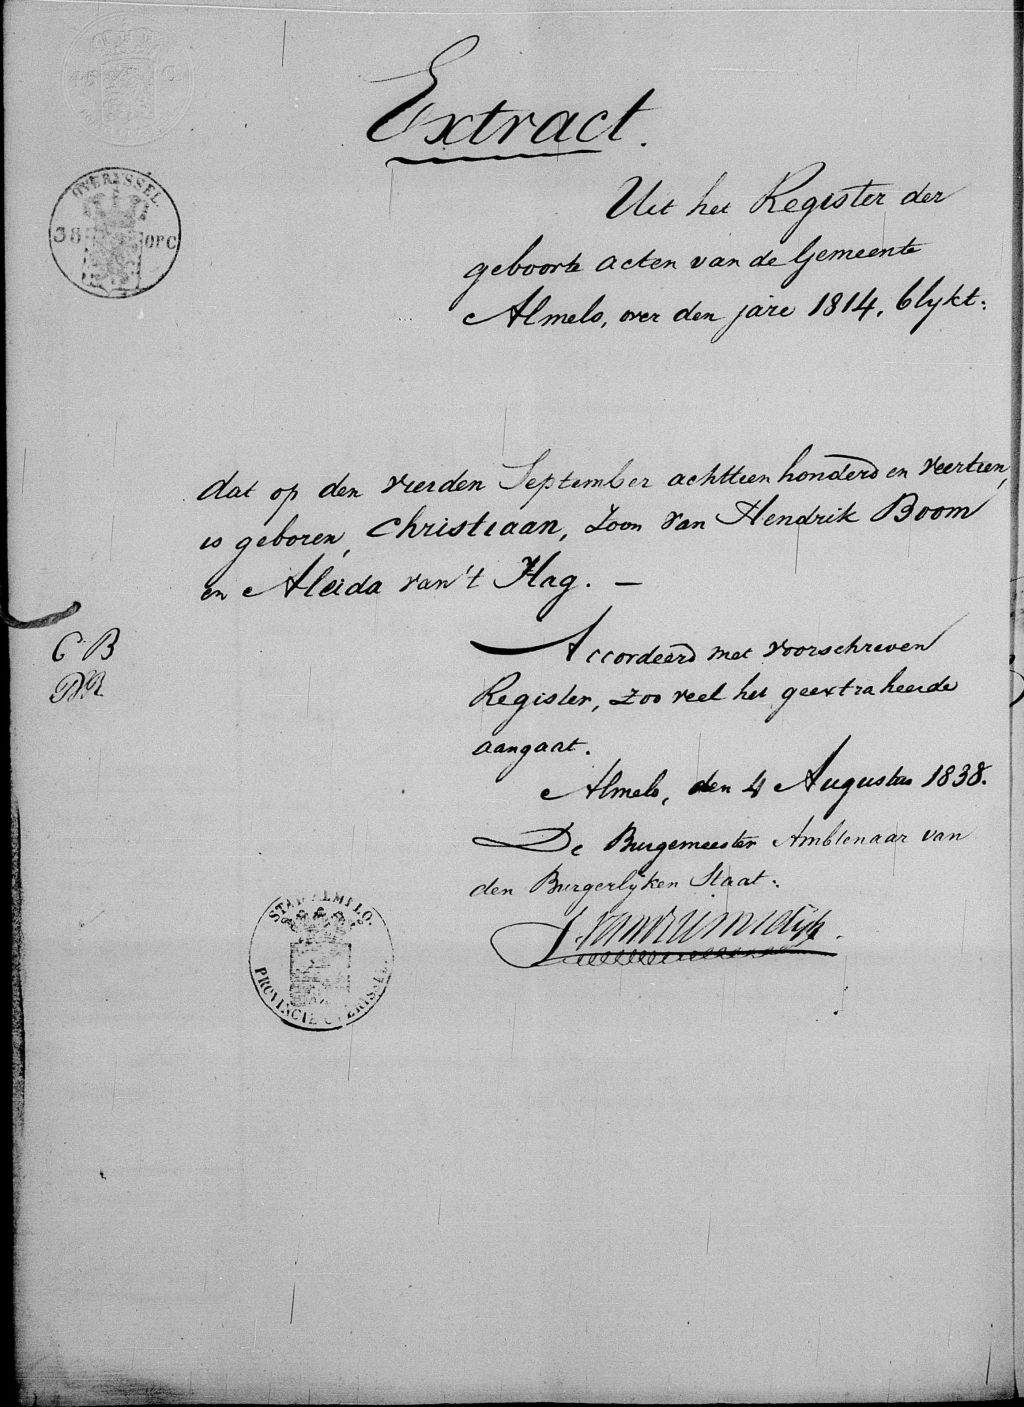 45 C
Extract.
OVERYSSEL.
38 OPC
Uit het Register der
geboorte acten van de Gemeente
Almelo, over den jare 1814, blykt:
dat op den vierden September achttien honderd en veertien,
is geboren, Christiaan, Zoon van Hendrik Boom
en Aleida van 't Hag. —
C B
Accordeerd met voorschreven
Register, zoo veel het geextraheerde
aangaat.
Almelo, den 4 Augustus 1838.
De Burgemeester Ambtenaar van
den Burgerlyken Staat:
STAD ALMELO.
PROVINCIE OVERISSEL